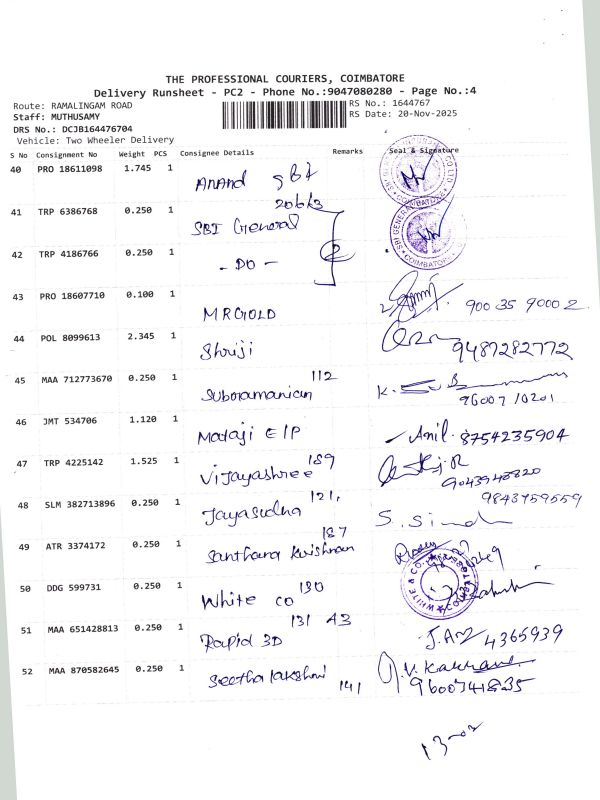 THE PROFESSIONAL COURIERS, COIMBATORE
Delivery Runsheet - PC2 - Phone No.:9047080280 - Page No.:4
Route: RAMALINGAM ROAD RS No.: 1644767
Staff: MUTHUSAMY RS Date: 20-Nov-2025
DRS No.: DCJB164476704
Vehicle: Two Wheeler Delivery
S No Consignment No Weight PCS Consignee Details Remarks Seal & Signature
40 PRO 18611098 1.745 1 Anand
41 TRP 6386768 0.250 1 SBI General
42 TRP 4186766 0.250 1 - DO -
43 PRO 18607710 0.100 1 MRGOLD 900 35 9000 2
44 POL 8099613 2.345 1 Shriji 9487282772
45 MAA 712773670 0.250 1 Subramanian 112
46 JMT 534706 1.120 1 Mataji E/P Anil. 8754235904
47 TRP 4225142 1.525 1 Vijayashree 189
48 SLM 382713896 0.250 1 Jayasudha 121, 9843759559
49 ATR 3374172 0.250 1 Santhana Krishnan 187
50 DDG 599731 0.250 1 White co 130 WHITE & CO.
51 MAA 651428813 0.250 1 Rapid 3D 131 43 4365939
52 MAA 870582645 0.250 1 Seetha lakshmi 141